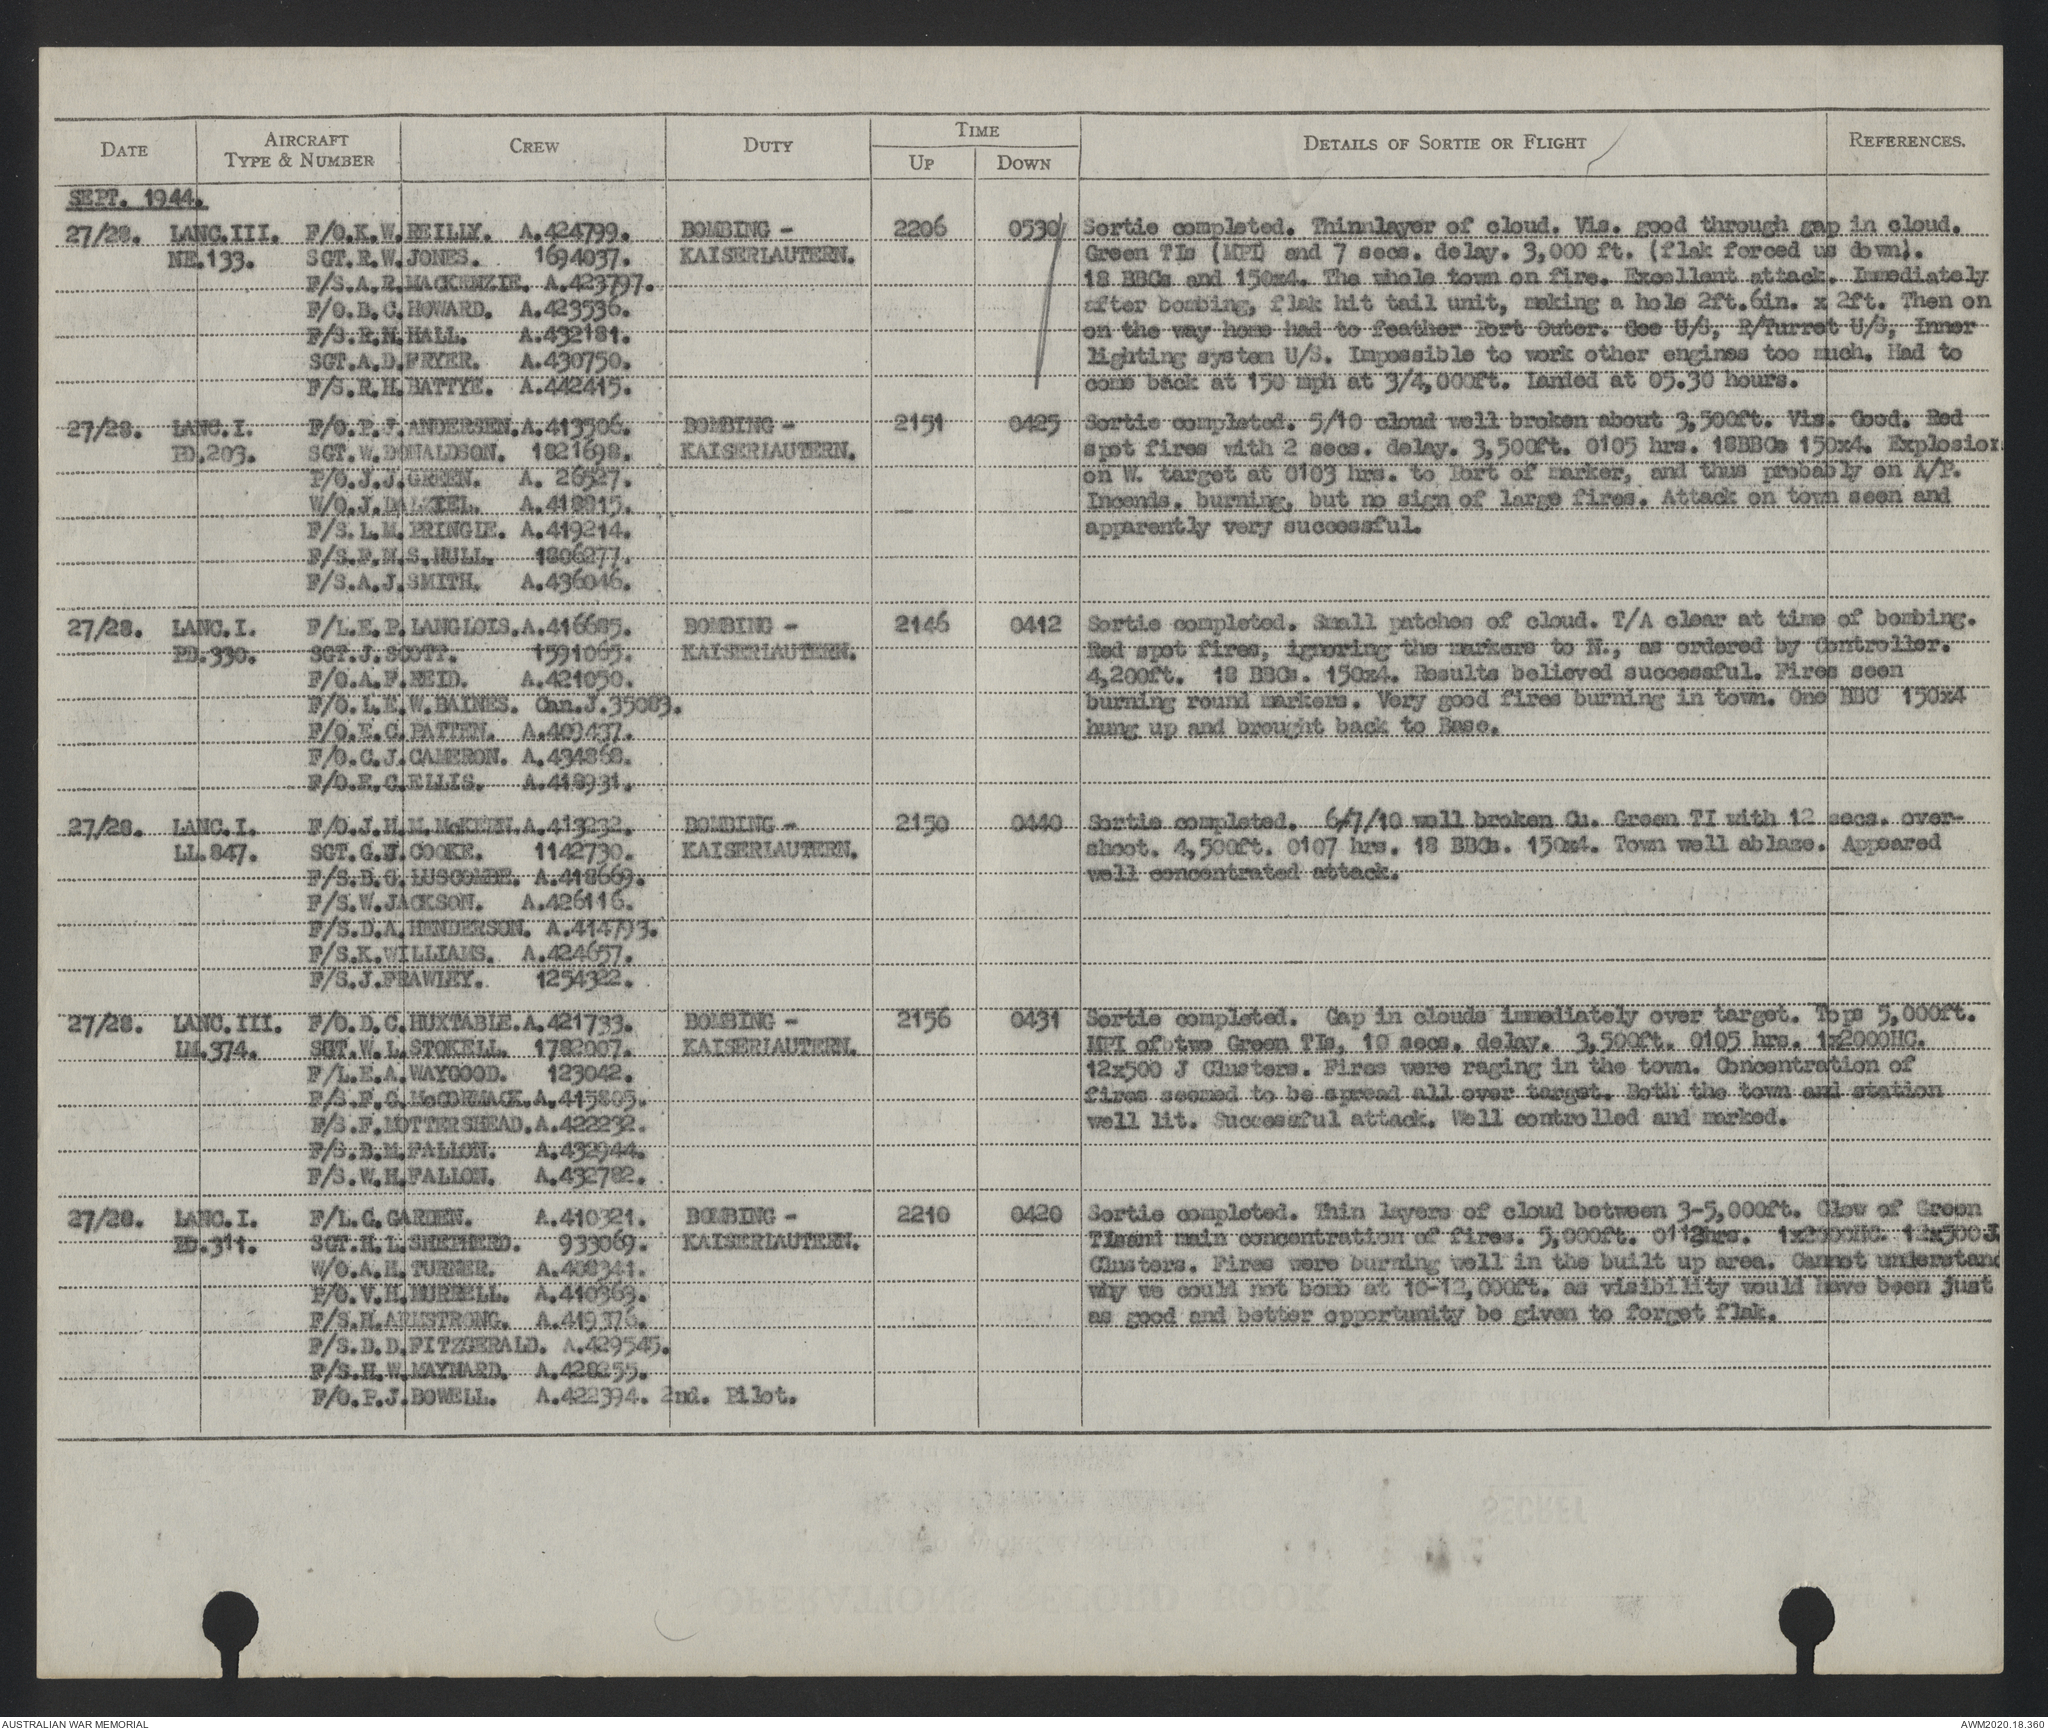 DATE AIRCRAFT TYPE & NUMBER CREW DUTY TIME UP DOWN DETAILS OF SORTIE OR FLIGHT REFERENCES.
SEPT. 1944.
27/28. LANC.III. F/O.K.W.REILLY. A.424799. BOMBING - 2206 0530 Sortie completed. Thinnlayer of cloud. Vis. good through gap in cloud.
NE.133. SGT.R.W.JONES. 1694037. KAISERLAUTERN. Green TIs (MPI) and 7 secs. delay. 3,000 ft. (flak forced us down).
F/S.A.R.MACKENZIE. A.423797. 18 BBCs and 150x4. The whole town on fire. Excellent attack. Immediately
F/O.B.C.HOWARD. A.423536. after bombing, flak hit tail unit, making a hole 2ft.6in. x 2ft. Then on
F/S.R.N.HALL. A.432181. on the way home had to feather Port Outer. Gee U/S, R/Turret U/S, Inner
SGT.A.D.FRYER. A.430750. lighting system U/S. Impossible to work other engines too much. Had to
F/S.R.H.BATTYE. A.442415. come back at 150 mph at 3/4,000ft. Landed at 05.30 hours.
27/28. LANC.I. F/O.P.J.ANDERSEN.A.413506. BOMBING - 2151 0425 Sortie completed. 5/10 cloud well broken about 3,500ft. Vis. Good. Red
PD.203. SGT.W.DONALDSON. 1821698. KAISERLAUTERN. spot fires with 2 secs. delay. 3,500ft. 0105 hrs. 18BBCs 150x4. Explosion
P/O.J.J.GREEN. A. 26527. on W. target at 0103 hrs. to Port of marker, and thus probably on A/P.
W/O.J.DALZIEL. A.418815. Incends. burning, but no sign of large fires. Attack on town seen and
F/S.L.M.PRINGLE. A.419214. apparently very successful.
F/S.F.N.S.HULL. 1806277.
F/S.A.J.SMITH. A.436046.
27/28. LANC.I. F/L.E.P.LANGLOIS.A.416685. BOMBING - 2146 0412 Sortie completed. Small patches of cloud. T/A clear at time of bombing.
PD.330. SGT.J.SCOTT. 1591065. KAISERLAUTERN. Red spot fires, ignoring the markers to N., as ordered by Controller.
F/O.A.F.REID. A.421050. 4,200ft. 18 BBCs. 150x4. Results believed successful. Fires seen
F/O.L.E.W.BAINES. Can.J.35083. burning round markers. Very good fires burning in town. One BBC 150x4
F/O.E.C.PATTEN. A.409437. hung up and brought back to Base.
F/O.C.J.CAMERON. A.434868.
F/O.E.C.ELLIS. A.418931.
27/28. LANC.I. F/O.J.H.M.McKERN.A.413232. BOMBING - 2150 0440 Sortie completed. 6/7/10 well broken Cu. Green TI with 12 secs. over-
LL.847. SGT.G.H.COOKE. 1142730. KAISERLAUTERN. shoot. 4,500ft. 0107 hrs. 18 BBCs. 150x4. Town well ablaze. Appeared
F/S.B.G.LUSCOMBE. A.418669. well concentrated attack.
F/S.W.JACKSON. A.426116.
F/S.D.A.HENDERSON. A.414793.
F/S.K.WILLIAMS. A.424657.
F/S.J.FRAWLEY. 1254322.
27/28. LANC.III. F/O.D.C.HUXTABLE.A.421733. BOMBING - 2156 0431 Sortie completed. Gap in clouds immediately over target. Tops 5,000ft.
LM.374. SGT.W.L.STOKELL. 1782007. KAISERLAUTERN. MPI of two Green TIs, 10 secs. delay. 3,500ft. 0105 hrs. 1x2000HC.
F/L.E.A.WAYGOOD. 123042. 12x500 J Clusters. Fires were raging in the town. Concentration of
F/S.F.G.McCORMACK.A.415805. fires seemed to be spread all over target. Both the town and station
F/S.F.MOTTERSHEAD.A.422232. well lit. Successful attack. Well controlled and marked.
F/S.B.M.FALLON. A.432944.
F/S.W.H.FALLON. A.432782.
27/28. LANC.I. F/L.G.GARDEN. A.410321. BOMBING - 2210 0420 Sortie completed. Thin layers of cloud between 3-5,000ft. Glow of Green
PD.311. SGT.H.L.SHEPHERD. 933069. KAISERLAUTERN. TIsand main concentration of fires. 5,000ft. 0112hrs. 1x2000HC. 12x500 J.
W/O.A.H.TURNER. A.408341. Clusters. Fires were burning well in the built up area. Cannot understand
P/O.V.H.MURRELL. A.410363. why we could not bomb at 10-12,000ft. as visibility would have been just
F/S.H.ARMSTRONG. A.419376. as good and better opportunity be given to forget flak.
F/S.D.D.FITZGERALD. A.429545.
F/S.H.W.MAYNARD. A.428255.
F/O.P.J.BOWELL. A.422394. 2nd. Pilot.
AUSTRALIAN WAR MEMORIAL AWM2020.18.360